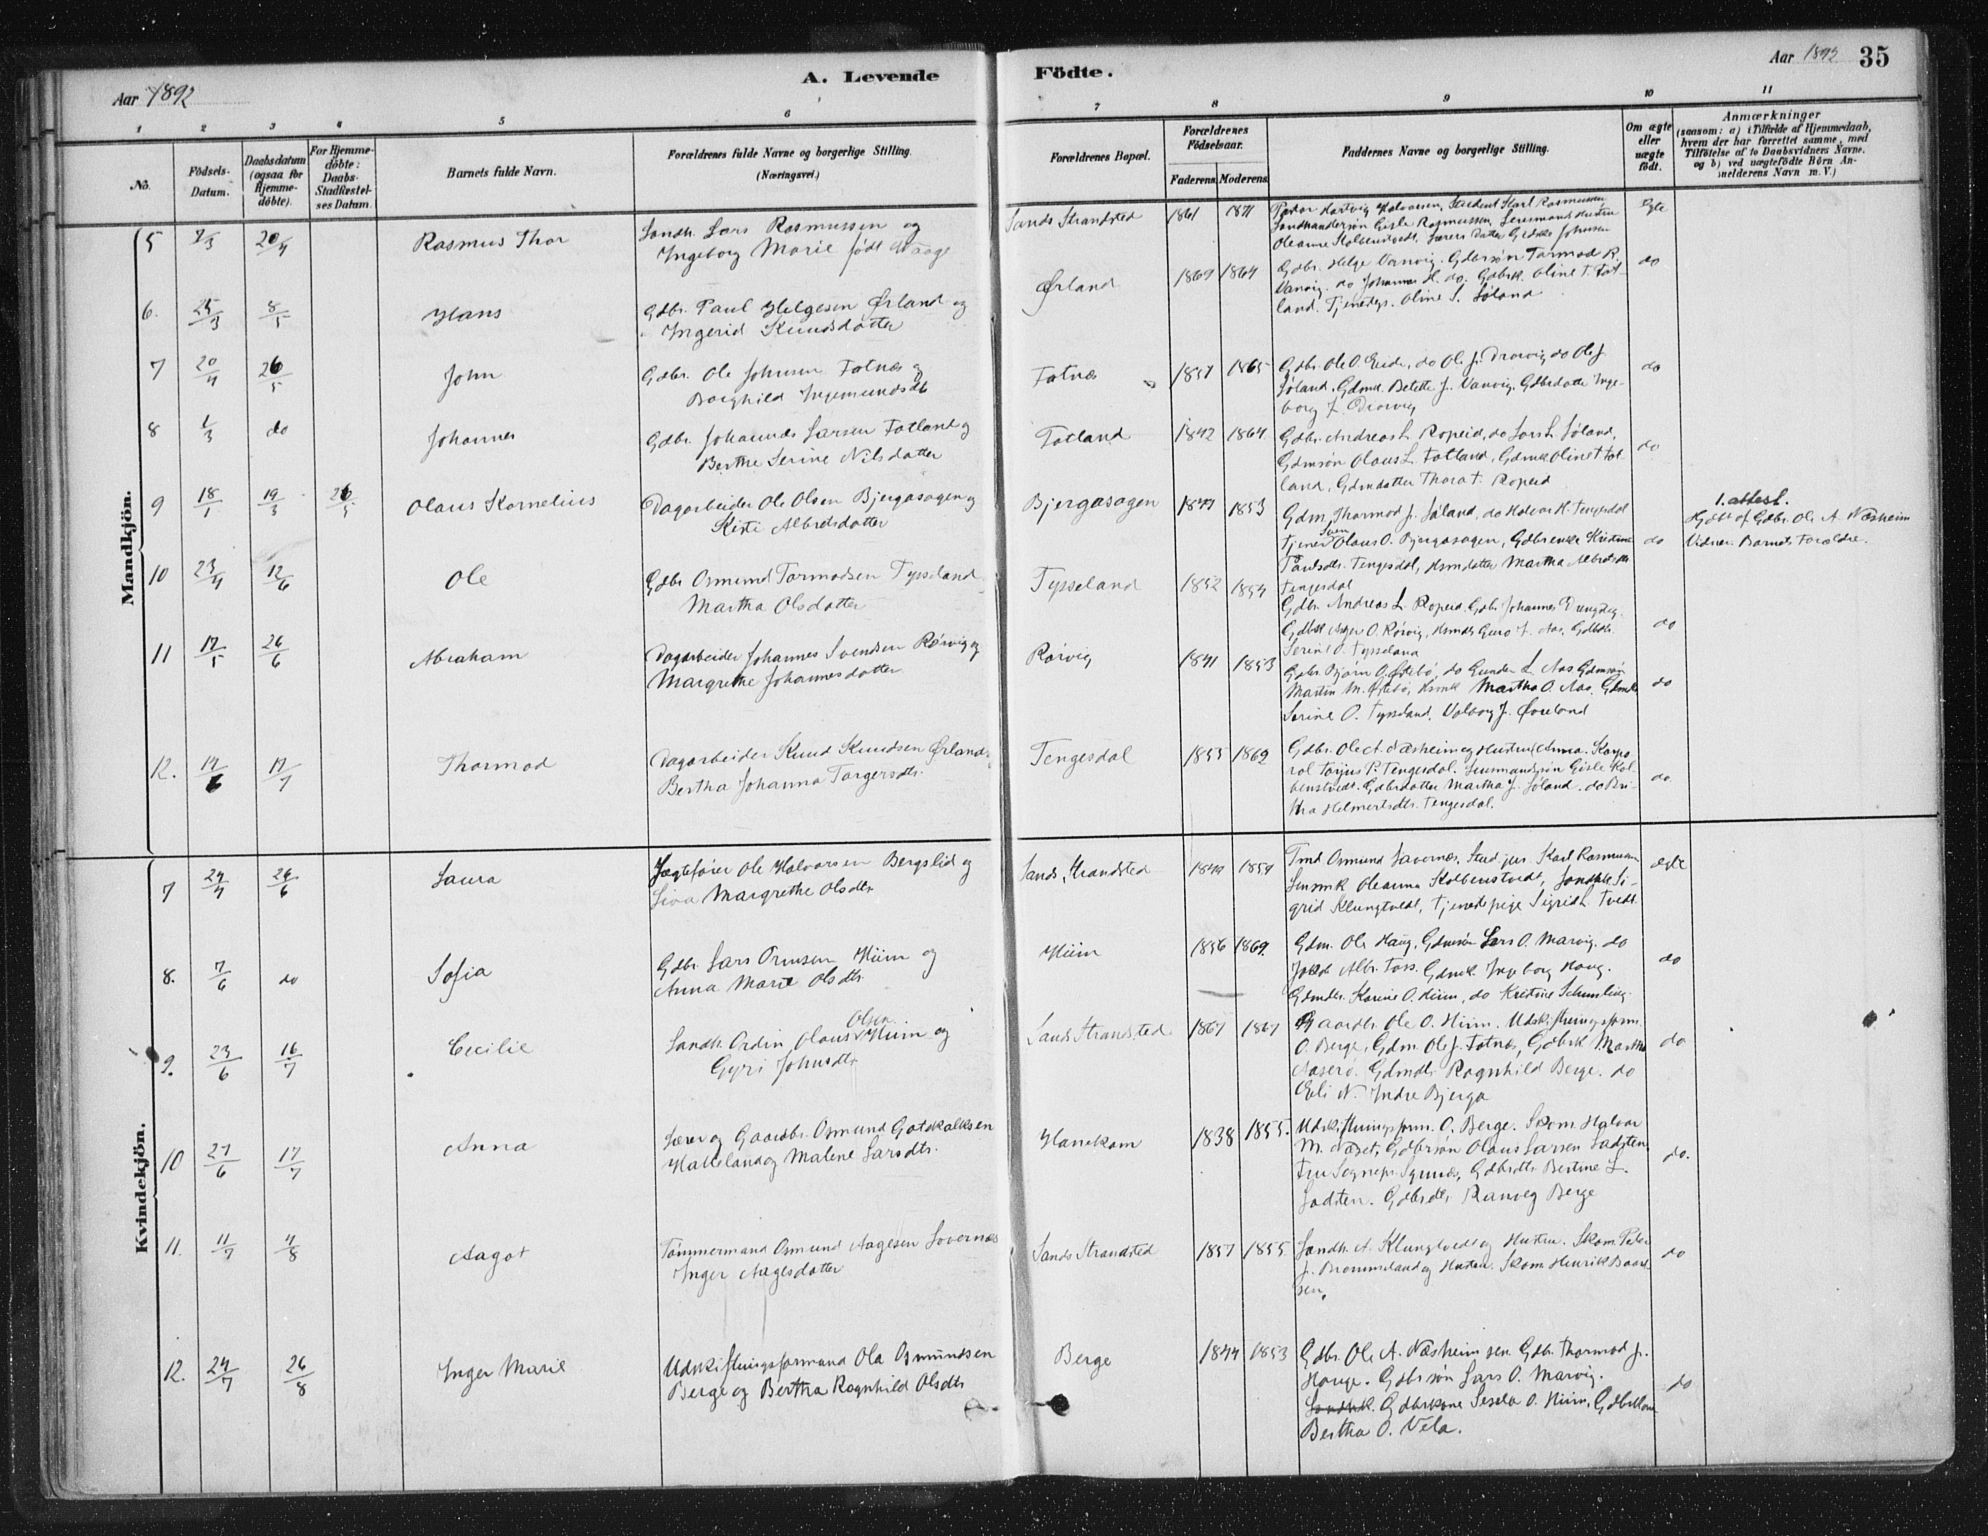 A. Levende
Födte.
Aar 1892
Aar 1892 35
1 2 3 4 5 6 7 8 9 10 11
No.
Födsels-
Datum.
Daabsdatum
(ogsaa for
Hjemme-
döbte).
For Hjemme-
döbte:
Daabs-
Stadfæstel-
ses Datum.
Barnets fulde Navn.
Forældrenes fulde Navne og borgerlige Stilling.
(Næringsvei.)
Forældrenes Bopæl.
Forældrenes
Födselsaar.
Faderens. Moderens.
Faddernes Navne og borgerlige Stilling.
Om ægte
eller
uægte
födt.
Anmærkninger
(saasom: a) i Tilfælde af Hjemmedaab,
hvem der har forrettet samme, med
Tilföielse af to Daabsvidners Navne.
og b) ved uægtefödte Börn An-
melderens Navn m. V.)
Mandkjön.
5 20/4 Rasmus Thor
Landh. Lars Rasmussen og
Ingeborg Marie født Waage
Sands Strandsted 1861 1871
Pastor Hartvig Halvorsen, Student Karl Rasmussen,
Landhandlersøn Gisle Rasmussen, Lensmands Hustru
Oleanne Kolbenstvedt, Lærers Datter Johnsen
Egte
6. 25/3 8/5 Hans
Gdbr. Paul Helgesen Ørland og
Ingerid Knudsdatter
Ørland 1869 1864
Gdbr. Helge Vanvig. Gdbrsøn Tormod R.
Vanvig. do Johannes H. do. Gdbrk. Oline T. Fat-
land. Tjenestep. Oline S. Søland
do
7 20/4 26/5 John
Gdbr. Ole Johnsen Fatnæs og
Borghild Ingemundsdt
Fatnæs 1857 1865
Gdbr. Ole O. Eide, do Ole J. Drarvig do Ole J.
Søland, Gdmk. Betette J. Vanvig, Gdbrdatte Inge-
borg J. Drarvig
do
8 1/3 do Johannes
Gdbr. Johannes Larsen Fatland og
Berthe Serine Nilsdatter
Fatland 1842 1864
Gdbr. Andreas L. Ropeid, do Lars L. Søland,
Gdmsøn Olaus L. Fatland, Gdmk Oline T. Fat-
land, Gdmdatter Thora T. Ropeid
do
9 18/1 19/3 26/5 Olaus Kornelius
Dagarbeider Ole Olsen Bjergasagen og
Kisti Albretsdatter
Bjergasagen 1853
Gdm. Thormod J. Søland, do Halvor H. Tengesdal
Tjenes Olaus O. Bjergasagen, Gdbrenke Kristine
Paulsdtr. Tengesdal, Hsmdatter Martha Albretsdtr
Tengesdal
do
1. attest.
Hjdbt af Gdbr. Ole A. Næsheim
Vidner Barnets Forældre.
10 23/4 12/6 Ole
Gdbr Osmund Tormodsen Tysseland
Martha Olsdatter
Tysseland 1852 1854
Gdbr. Andreas L. Ropeid. Gdbr Johannes
Gdbk Asger O. Rørvig, Guro J. Aas, Gdbdtr.
Serine O. Tysseland
do
11 17/5 26/6 Abraham
Dagarbeider Johannes Svendsen Rørvig og
Margrethe Johannesdatter
Rørvig 1841 1853
Gdbr. Bjørn O. Østebø, do Gunder L. Aas Gdmsøn
Martin M. Østebø, Hsmk Martha O. Aas, Gdmk
Serine O. Tysseland, Valborg J. Øveland
do
12. 14/6 17/7 Thormod
Dagarbeider Knud Knudsen Ørland
Bertha Johanna Torgersdtr.
Tengesdal 1855 1862
Gdbr. Ole A. Næsheim og Hustru Anna. Korpo-
ral Torjus P. Tengesdal. Lensmandssøn Gisle Kol
benstvedt. Gdbrdatter Martha J. Søland. do Bri-
tha Helmertsdtr. Tengesdal.
do
Kvindekjön.
7 24/4 26/6 Laura
Jægtefører Ole Halvorsen Bergslid og
Liva Margrethe Olsdtr
Sands Strandsted 1859
Tmd Osmund Lavernæs, Stud jur. Karl Rasmussen
Lensmk Oleanna Kolbenstvedt, Landhk Si-
grid Klungtvedt, Tjenestepige Sigrid L. Tvedt.
ægte
8. 7/6 do Sofia
Gdbr. Lars Ormsen Hiim og
Anna Marie Olsdtr.
Hiim 1856 1869.
Gdm. Ole Haug, Gdmsøn Lars O. Marvig. do
Jakob Albr. Foss. Gdmk. Ingeborg Haug.
Gdmdtr. Karine O. Hiim, do Kristine Schumling
do
9. 23/6 16/7 Cecilie
Landh. Ordin Olaus Olsen Hiim og
Gyri Johnsdtr
Sands Strandsted 1867 1867
Gaardbr. Ole O. Hiim. Udskiftningsform.
O. Berge. Gdm. Ole J. Fatnæs, Gdbrk. Martha
Aasero. Gdmdtr. Ragnhild Berge. do
Eli N. Indre Bjerga
do
10 27/6 17/7 Anna
Lærer og Gaardbr. Osmund Gotskalksen
Hatteland og Malene Larsdtr.
Hanekam 1838 1855.
Udskiftningsform. O. Berge. Skom. Halvor
M. Næset, Gdbrsøn Olaus Larsen Ladsten
Fru Sognepr. Gdbrdtr Bertine L.
Ladsten. Gdbrdtr Ranveg Berge
do.
11. 11/7 4/8 Aagot
Tømmermand Osmund Aagesen Lovernæs
Inger Aagesdatter
Sands Strandsted 1857 1855
Landh. A. Klungtvedt og Hustru. Skom. Peter
J. Brommeland og Hustru. Skom. Henrik Baard
sen.
do
12. 24/7 26/8 Inger Marie
Udskiftningsformand Ola Osmundsen
Berge og Bertha Ragnhild Olsdtr
Berge 1844 1853
Gdbr. Ole A. Næsheim sen. Gdbr. Thormod J.
Hauge. Gdbrsøn Lars O. Marvig.
Landhk. Gdbrkone Sesela O. Hiim, Gdbrkone
Bertha O. Vela.
do